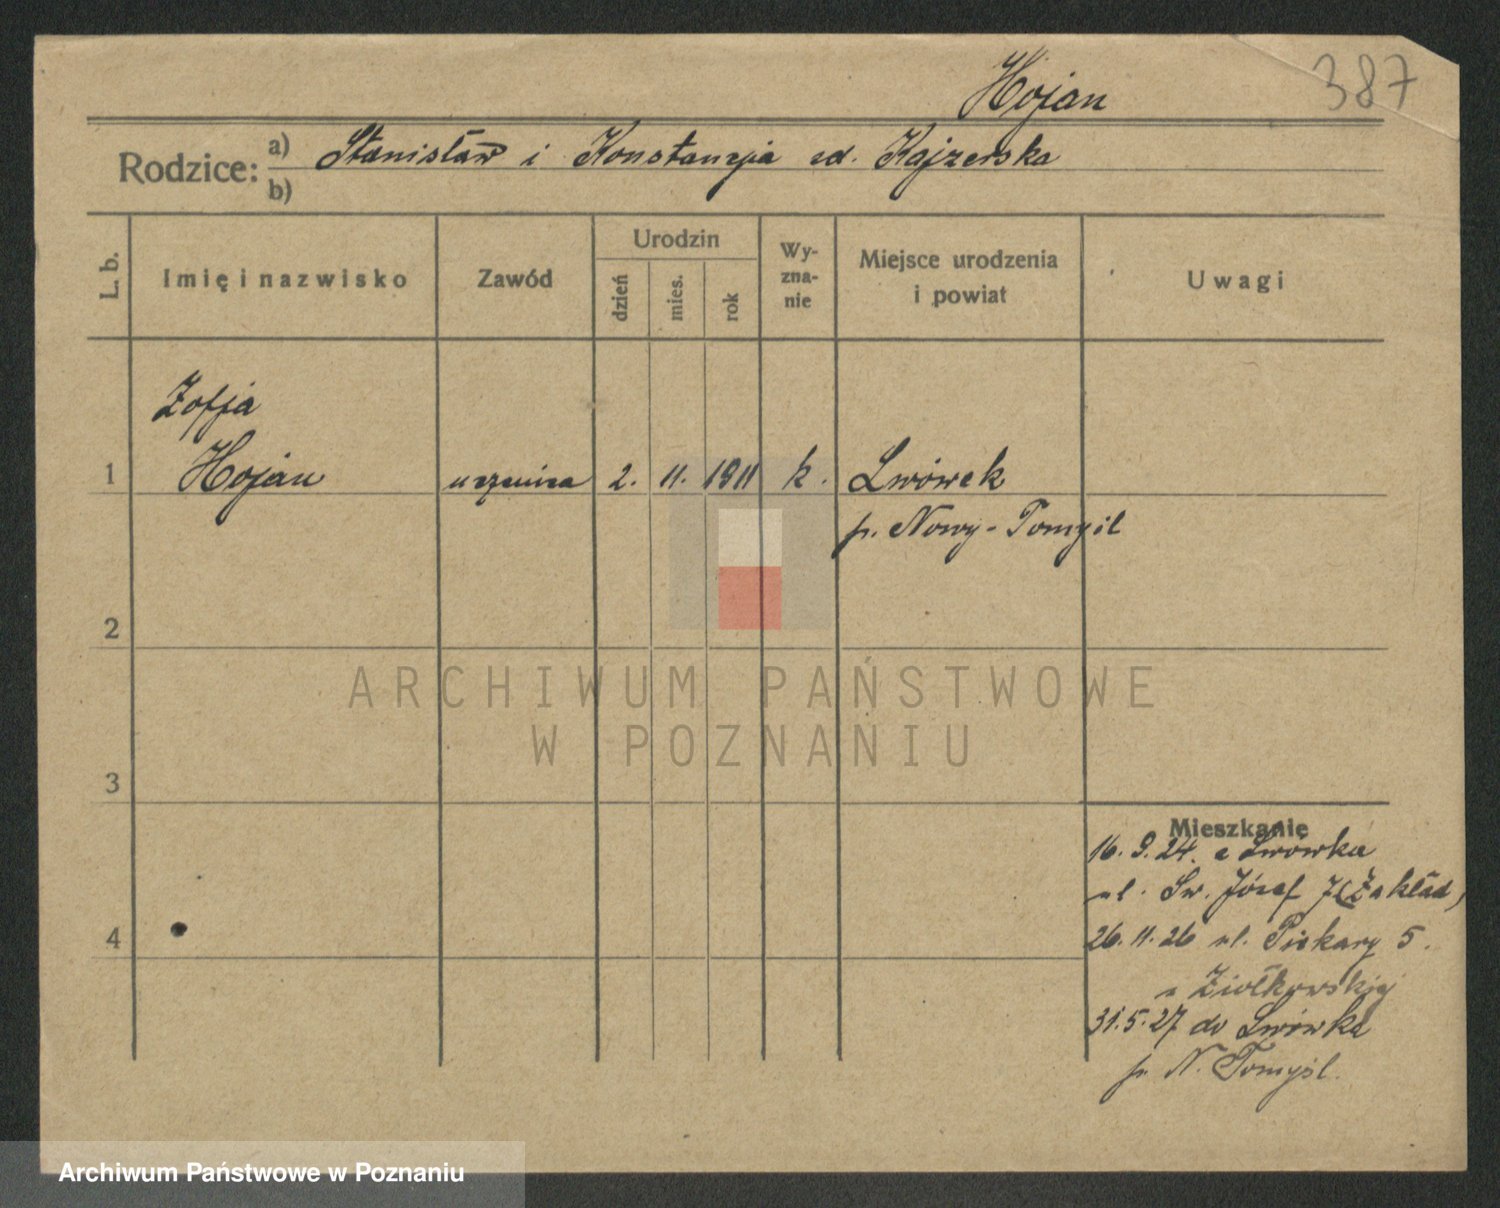 Hojan
387
Rodzice: a) Stanisław i Konstancja zd. Kajzerska
b)
L. b.
Imię i nazwisko
Zawód
Urodzin
dzień
mies.
rok
Wy-
zna-
nie
Miejsce urodzenia
i powiat
Uwagi
Zofja
1 Hojan uczenica 2. 11. 1911 k. Lwówek
p. Nowy-Tomyśl
2
3
4
Mieszkanie
16. 9. 24. z Lwówka
ul. Św. Józef (Zakład)
26. 11. 26 ul. Piekary 5.
u Ziółkowskiej
31. 5. 27 do Lwówka
p. N. Tomyśl.
ARCHIWUM PAŃSTWOWE
W POZNANIU
Archiwum Państwowe w Poznaniu